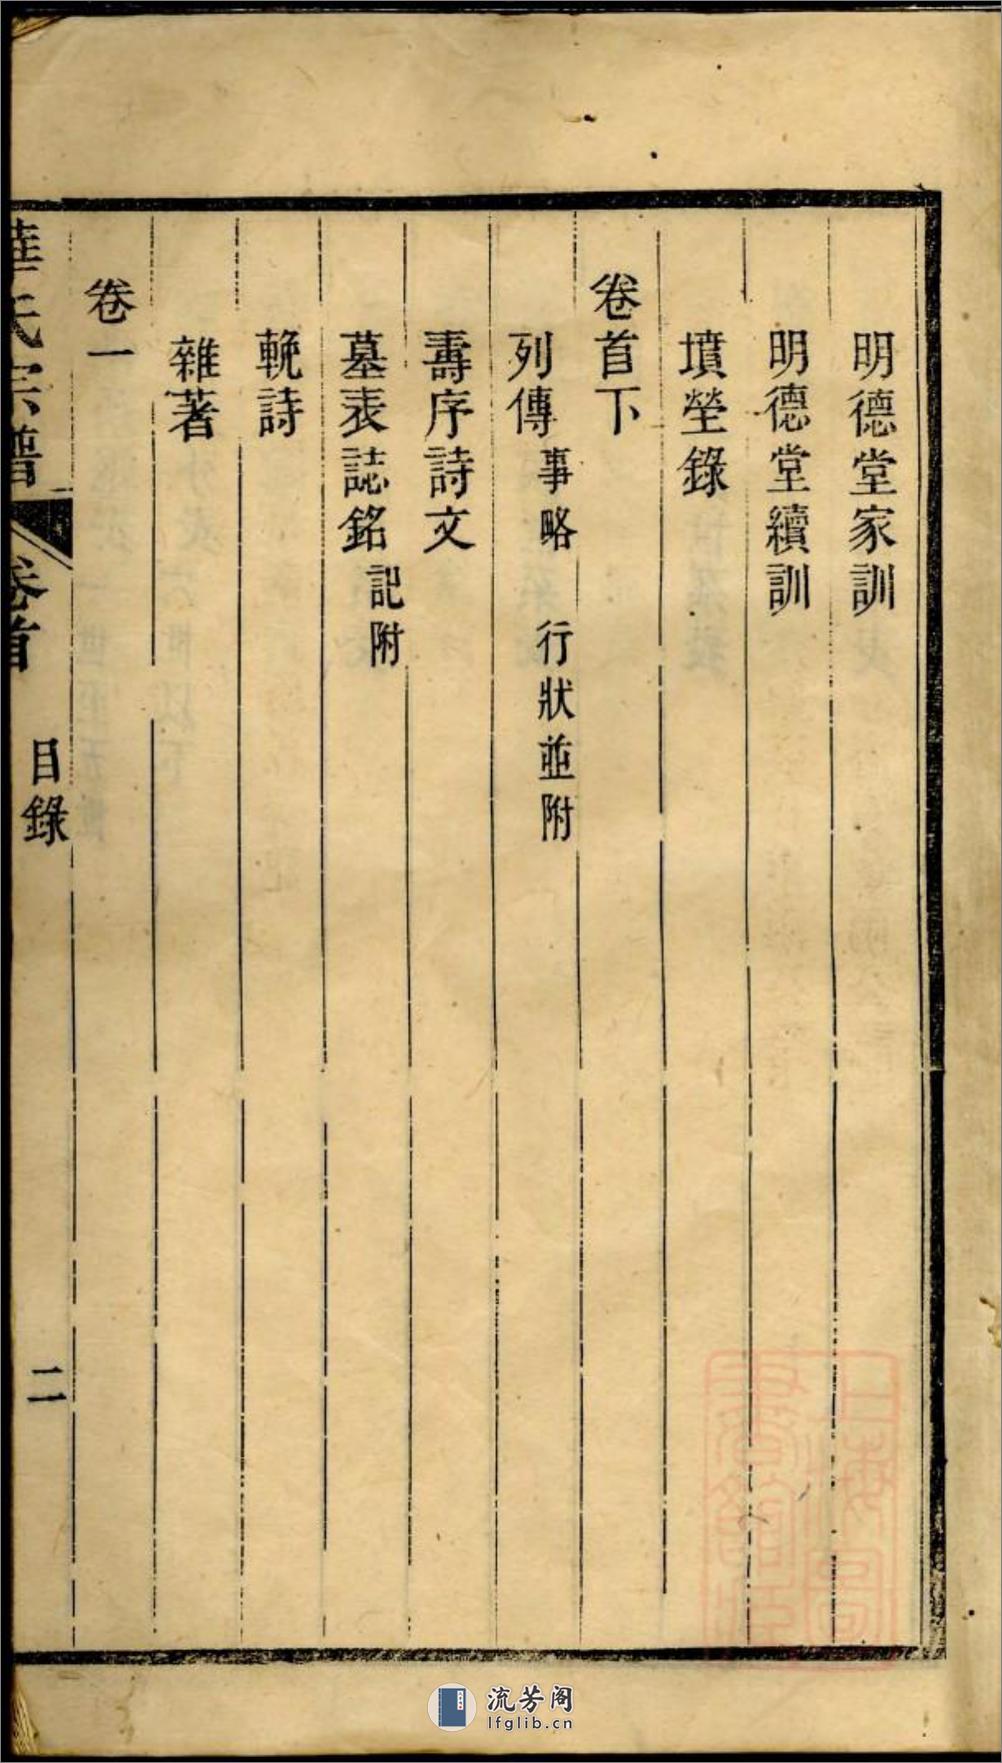 明德堂家訓
明德堂續訓
墳塋錄
卷首下
列傳 事略 行狀並附
壽序詩文
墓表誌銘 記附
輓詩
雜著
卷一
華氏宗譜 卷首 目錄 二
上海圖書館藏
流芳阁
lfglib.cn